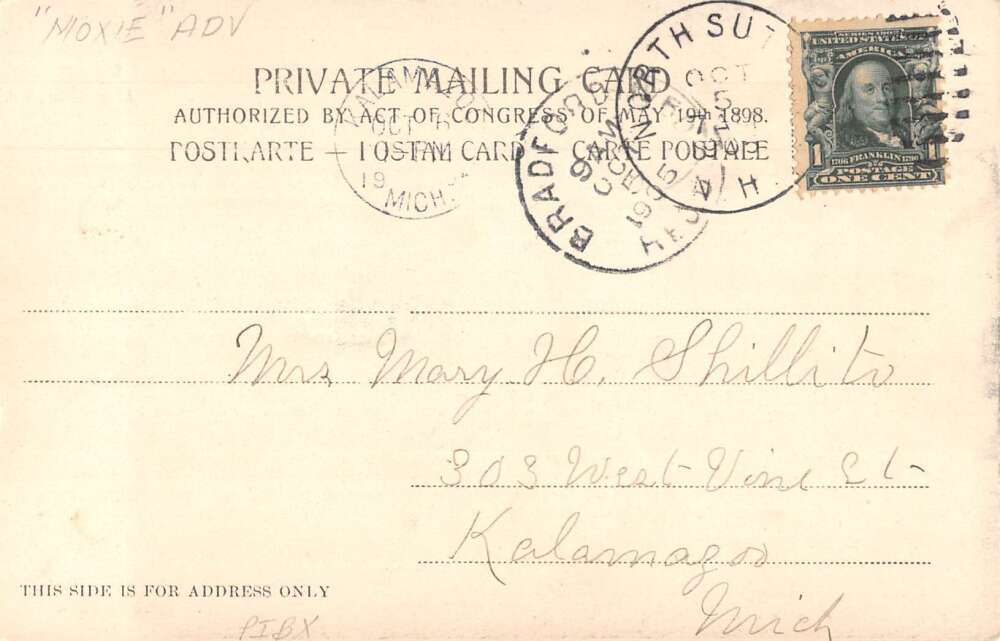 "MOXIE" ADV
PRIVATE MAILING CARD
AUTHORIZED BY ACT OF CONGRESS OF MAY 19th 1898.
POSTKARTE — POSTAL CARD — CARTE POSTALE
KALAMAZOO
OCT
19
MICH.
BRADFORD
REC'D.
NORTH SUT
OCT
5
N H
SERIES 1902
UNITED STATES OF AMERICA
1706 FRANKLIN 1790
1 1
POSTAGE
ONE CENT
Mrs Mary H. Shillito
303 West Vine St-
Kalamazoo
Mich
THIS SIDE IS FOR ADDRESS ONLY
PIBX